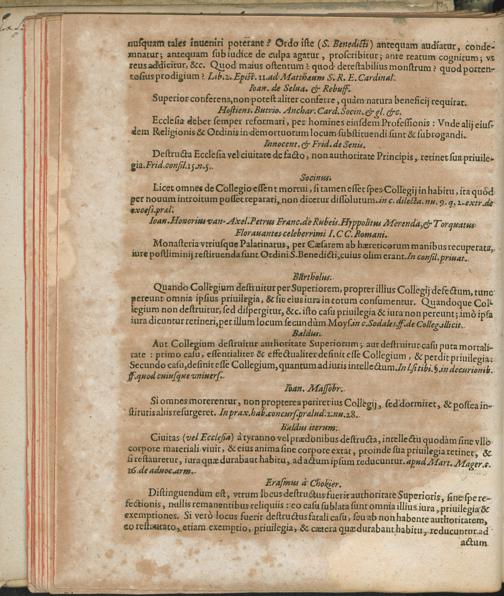 nusquam tales inueniri poterant? Ordo iste (S. Benedicti) antequam audiatur, conde-
mnatur; antequam sub iudice de culpa agatur, proscribitur; ante reatum cognitum; vt
reus addicitur, &c. Quod maius ostentum? quod detestabilius monstrum? quod porten-
tosius prodigium? Lib. 2. Epist. 11. ad Matthæum S. R. E. Cardinal.
Ioan. de Selua. & Rebuff.
Superior conferens, non potest aliter conferre, quàm natura beneficij requirat.
Hostiens. Butrio. Anchar. Card. Socin. & gl. &c.
Ecclesia debet semper reformari, per homines eiusdem Professionis: Vnde alij eius-
dem Religionis & Ordinis in demortuorum locum substituendi sunt & subrogandi.
Innocent. & Frid. de Senis.
Destructa Ecclesia vel ciuitate de facto, non authoritate Principis, retinet sua priuile-
gia. Frid. consil. 15. n. 5.
Socinus.
Licet omnes de Collegio essent mortui, si tamen esset spes Collegij in habitu, ita quòd
per nouum introitum posset reparari, non dicetur dissolutum. in c. dilecta. nu. 9. q. 2. extr. de
excess. præl.
Ioan. Honorius van-Axel. Petrus Franc. de Rubeis. Hyppolitus Merenda, & Torquatus
Florauantes celeberrimi I. CC. Romani.
Monasteria vtriusque Palatinatus, per Cæsarem ab hæreticorum manibus recuperata,
iure postliminij restituenda sunt Ordini S. Benedicti, cuius olim erant. In consil. priuat.
Bartholus.
Quando Collegium destruitur per Superiorem, propter illius Collegij defectum, tunc
pereunt omnia ipsius priuilegia, & sic eius iura in totum consumentur. Quandoque Col-
legium non destruitur, sed dispergitur, &c. isto casu priuilegia & iura non pereunt; imò ipsa
iura dicuntur retineri, per illum locum secundùm Moys. in c. Sodales. ff. de Colleg. illicit.
Baldus.
Aut Collegium destruitur authoritate Superiorum; aut destruitur casu puta mortali-
tate: primo casu, essentialiter & effectualiter desinit esse Collegium, & perdit priuilegia:
Secundo casu, desinit esse Collegium, quantum ad iuris intellectum. In l. sitibi. §. in decurionib.
ff. quod cuiusque vniuers.
Ioan. Massobr.
Si omnes morerentur, non propterea periret ius Collegij, sed dormitet, & postea in-
stitutis alis resurgeret. In prax. hab. concurs. prælud. 2. nu. 28.
Baldus iterum.
Ciuitas (vel Ecclesia) à tyranno vel prædonibus destructa, intellectu quodam sine vllo
corpore materiali viuit, & eius anima sine corpore extat, proinde sua priuilegia retinet, &
si restauretur, iura quæ durabant habitu, ad actum ipsum reducuntur. apud Mart. Mager. c.
16. de aduoc. arm.
Erasmus à Chokier.
Distinguendum est, vtrum locus destructus fuerit authoritate Superioris, sine spe re-
fectionis, nullis remanentibus reliquiis: eo casu sublata sunt omnia illius iura, priuilegia &
exemptiones. Si verò locus fuerit destructus fatali casu, seu ab non habente authoritatem,
eo restaurato, etiam exemptio, priuilegia, & cætera quæ durabant habitu, reducuntur ad
actum